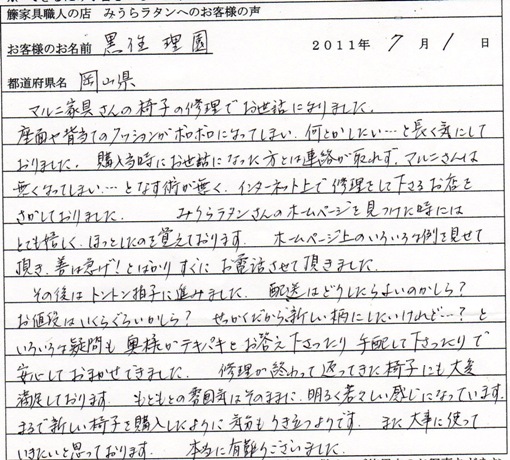 籐家具職人の店 みうらラタンへのお客様の声
お客様のお名前 黒住 理園 2011年 7月 1日
都道府県名 岡山県
マルニ家具さんの椅子の修理でお世話になりました。
座面や背当てのクッションがボロボロになってしまい、何とかしたい…と長く気にして
おりました。購入当時にお世話になった方とは連絡が取れず、マルニさんは
無くなってしまい…となす術が無く、インターネット上で修理をして下さるお店を
さがしておりました。 みうらラタンさんのホームページを見つけた時には
とても嬉しく、ほっとしたのを覚えております。 ホームページ上のいろいろな例を見せて
頂き、善は急げ!とばかりすぐに お電話させて頂きました。
その後はトントン拍子に進みました。 配送はどうしたらよいのかしら?
お値段はいくらぐらいかしら? せっかくだから新しい柄にしたいけれど…?と
いろいろな疑問も 奥様がテキパキとお答え下さったり 手配して下さったりで
安心しておまかせできました。 修理が終わって返ってきた椅子にも大変
満足しております。 もともとの雰囲気はそのままに、明るく若々しい感じになっています。
まるで新しい椅子を購入したように気分もうき立つようです。 また大事に使って
いきたいと思っております。 本当に有難うございました。